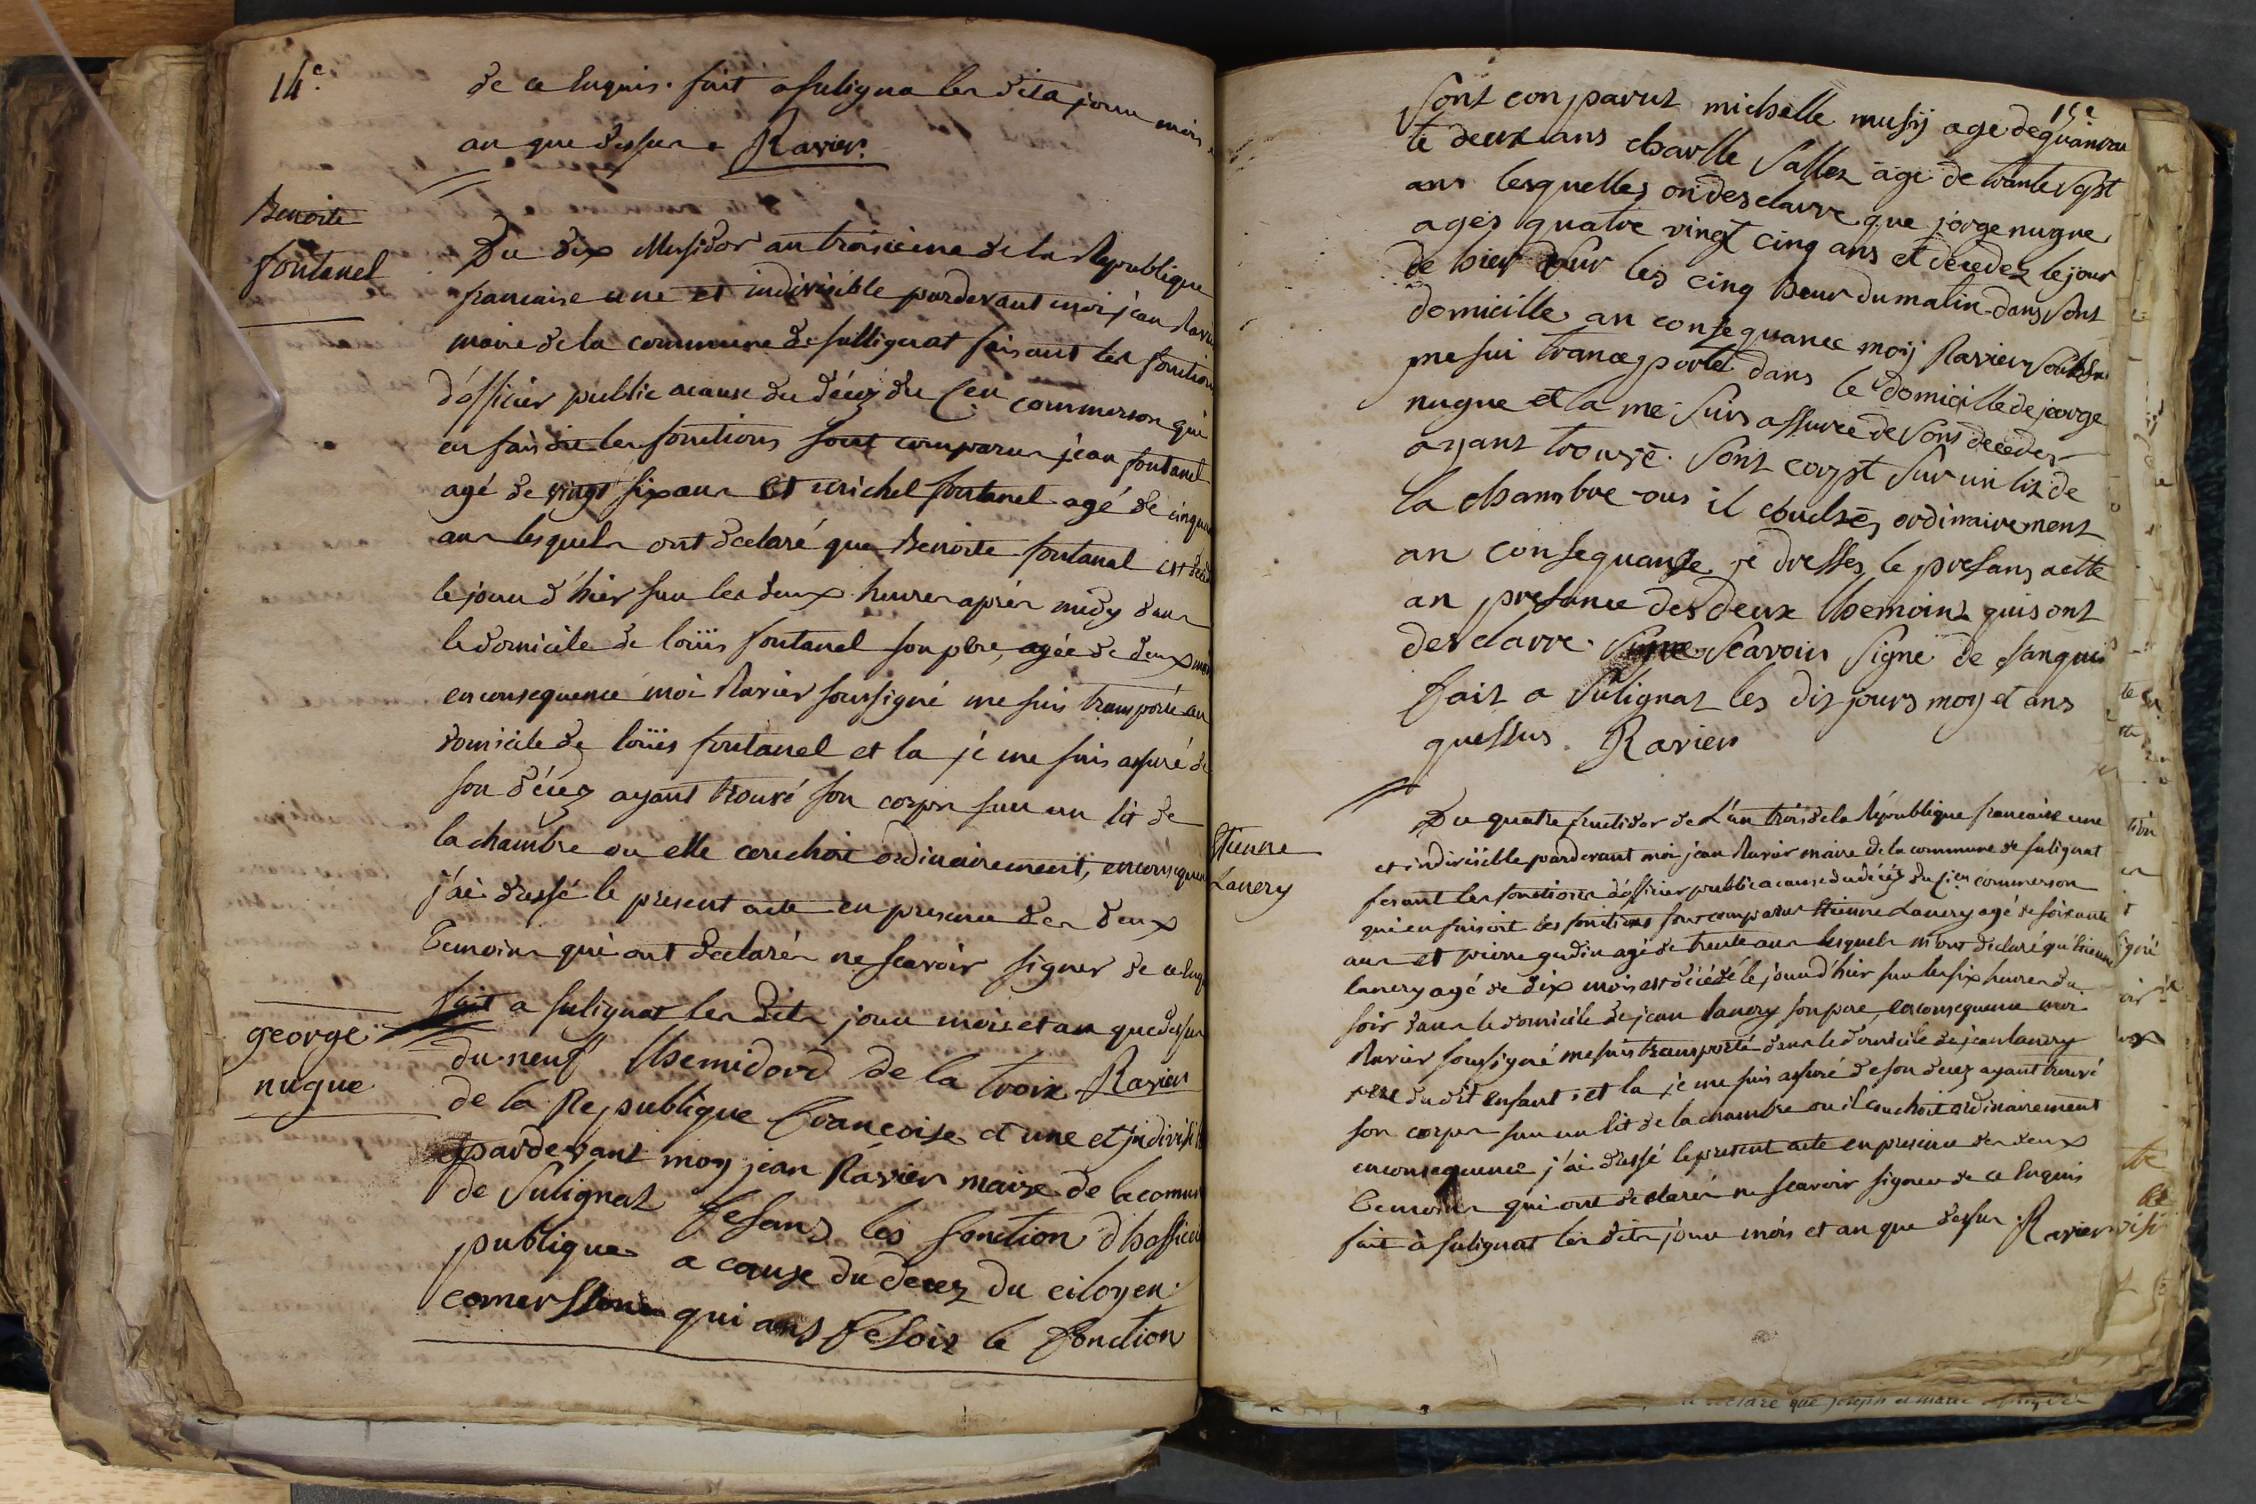 14e
de ce enquis. fait a suligna les dits jour mois
an que dessus. Ravier
Benoite
fontanel
Du dix Messidor an troisieme de la Republique
francaise une et indivisible pardevant moi jean Ravier
maire de la commune de sullignat faisant les fonctions
d'officier public acause du décéz du Cen commerson qui
en faisoit les fonctions sont comparus jean fontanel
agé de vingt six ans et michel fontanel agé de cinquante
ans lesquels ont declaré que Benoite fontanel est décédé
le jour d'hier sur les deux heures après midy dans
le domicile de loüis fontanel son pere, agée de deux mois
en consequence moi Ravier soussigné me suis transporté au
domicile de loüis fontanel et la je me suis assuré de
son décéz ayant trouvé son corps sur un lit de
la chambre ou elle couchoit ordinairement, en consequence
j'ai dressé le present acte en presence des deux
temoins qui ont declarés ne scavoir signer de ce enquis
fait a sulignat les dits jour mois et an que dessus
Ravier
george
nugue
du neuf themidord de la troix
de la Republique francoise et une et jndivisible
pardevant moy jean Ravier maire de la comune
de Sulignat fesans les fonction dhofficier
publique a couse du decez du citoyen
comersson qui ans fesoit le fonction
15e
Sont conparut michelle musÿ age de quaranre
te deux ans charlle Sallez age de trante sept
ans lesquelles on desclarre que jorge nugue
ages quatre vingt cinq ans et decedez le jour
de hier sur les cinq heur du matin dans sont
domicille an consequance moÿ Ravier soubs
me sui trancsporté dans le domicille de jeorge
nugue et la me suis assuree de sons decedes
ayant trouvé sont corpst sur un liz de
la chambre ous il couchéz ordinairement
an consequanse je dresses le presans actte
an presance des deux themoins quisont
desclarre scavoir signe de sanquis
fait a Sulignat les dit jours moy et ans
quessus. Ravier
Etienne
Lanery
Du quatre fructidor de L'an trois de la République francaise une
et indivisible pardevant moi jean Ravier maire de la commune de sulignat
fesant les fonctions d'officier public acause du décéz du Cien commerson
qui en faisoit les fonctions sont comparus Etienne Lanery agé de soixante
ans et pierre gudin agé de trente ans lesquels m'ont declaré qu'Etienne
lanery agé de dix mois est décédé le jour d'hier sur les six heures du
soir dans le domicile de jean lanery son pere en consequence moi
Ravier soussigné me suis transporté dans le domicile de jean lanery
pere du dit enfant, et la je me suis assuré de son decez ayant trouvé
son corps sur un lit de la chambre ou il couchoit ordinairement
en consequence j'ai dressé le present acte en presence des deux
temoins qui ont declarés ne scavoir signer de ce enquis
fait à sulignat les dits jour mois et an que dessus. Ravier
declare que joseph et marie